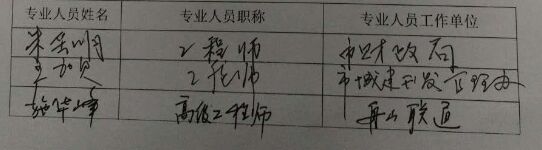 专业人员姓名 专业人员职称 专业人员工作单位
工程师 市财政局
工程师 市城建开发管理办
施华峰 高级工程师 舟山联通